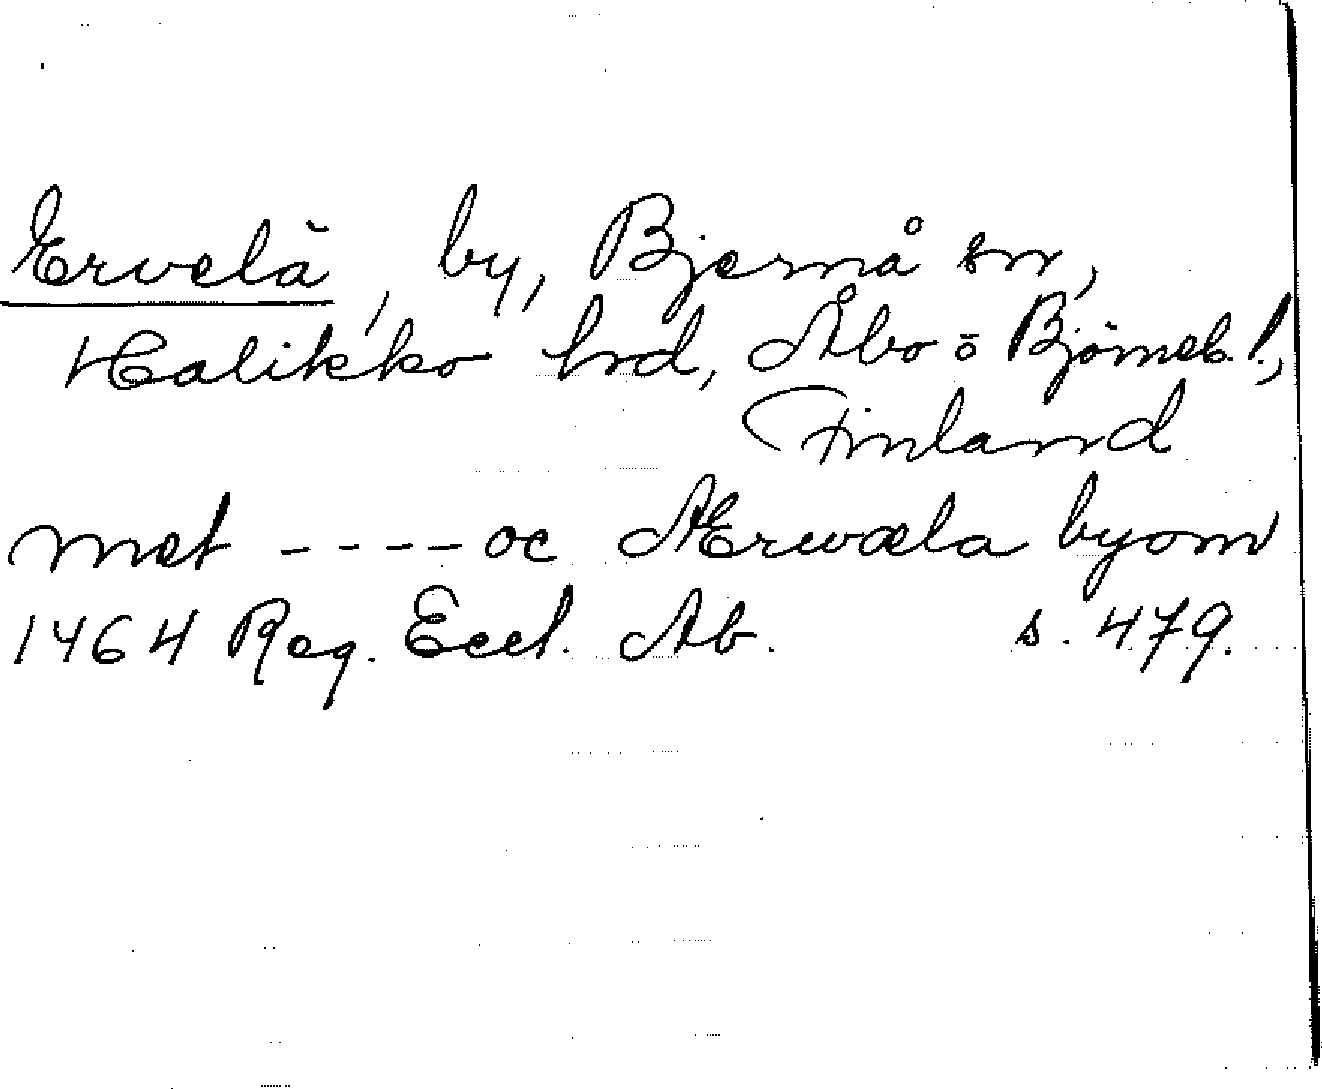 Ervelä, by, Bjernå sn,
Halikko hrd, Åbo o Björneb. l.,
Finland
met ---- oc Ærwæla byom
1464 Reg. Eccl. Ab. s. 479.